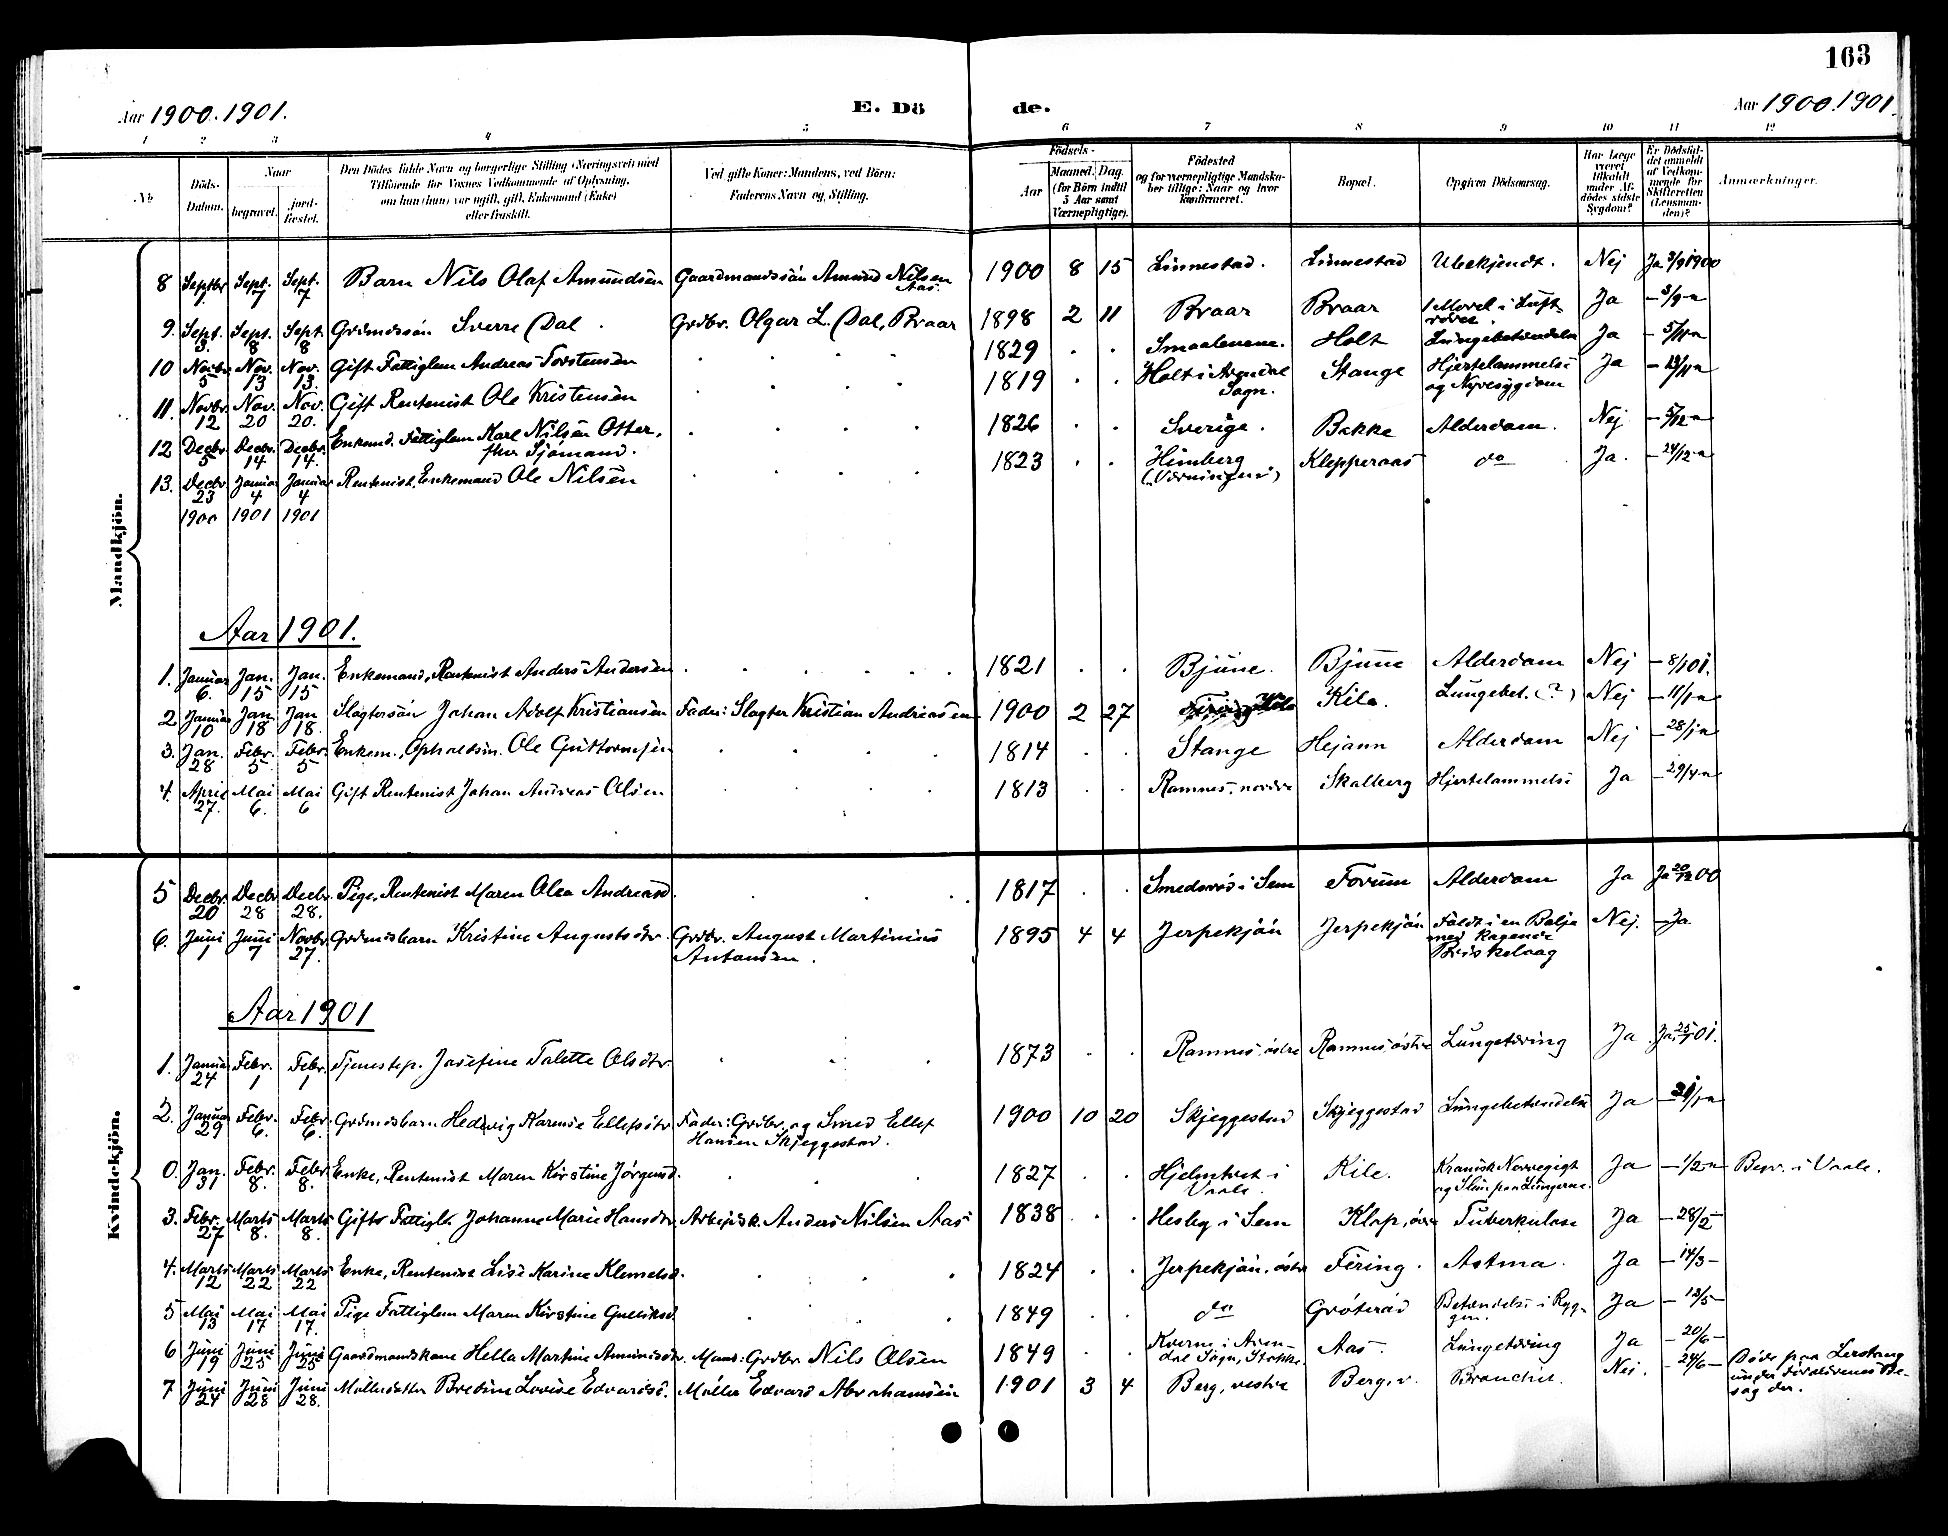 163
Aar 1900. 1901.
E. Dö
de.
Aar 1900. 1901.
1 2 3 4 5 6 7 8 9 10 11 12
No
Döds-Datum.
Naar
begravet.
jord-fæstet.
Den Dödes fulde Navn og borgerlige Stilling (Næringsvei) med
Tilföiende for Voxnes Vedkommende af Oplysning,
om han (hun) var ugift, gift, Enkemand (Enke)
eller fraskilt.
Ved gifte Koner: Mandens, ved Börn:
Faderens Navn og Stilling.
Födsels-
Aar
Maaned. Dag.
(for Börn indtil
5 Aar samt
Værnepligtige).
Födested
og for værnepligtige Mandska-
ber tillige: Naar og hvor
konfirmeret.
Bopæl.
Opgiven Dödsaarsag.
Har Læge
været
tilkaldt
under Af-
dödes sidste
Sygdom?
Er Dödsfal-
det anmeldt
af Vedkom-
mende for
Skifteretten
(Lensman-
den)?
Anmærkninger.
Mandkjön.
8 Septbr. Sept. 7 Sept. 7 Barn Nils Olaf Amundsen Gaardmandssön Amund Nilsen Aas. 1900 8 15 Linnestad. Linnestad Ubekjendt. Nej Ja 3/9 1900
9. Sept. 3. Sept. 8 Sept. 8 Grdmdssön Sverre Dal. Grdbr. Olgar L. Dal, Braar 1898 2 11 Braar Braar 1 Morel i Luft-röret. Ja – 3/9 –
10 Novbr. 5 Nov. 13 Nov. 13. Gift Fattiglem Andreas Torstensen 1829 Smaalenene. Holt Lungebetændelse Ja – 5/11 –
11. Novbr. 12 Nov. 20 Nov. 20. Gift Rentenist Ole Kristensen 1819 Holt i Arendal Sogn. Stange Hjertelammelse og Nyresygdom Ja – 13/11 –
12 Decbr. 5 Decbr. 14 Decbr. 14. Enkemd. Fattiglem Karl Nilsen Otter, fhv. Sjömand. 1826 Sverige. Bakke Alderdom. Nej – 5/12 –
13. Decbr. 23 1900 Januar 4 1901 Januar 4 1901 Rentenist, Enkemand Ole Nilsen 1823 Himberg Klepperaas do Ja. – 24/12 –
Aar 1901.
1. Januar 6. Jan. 15 Jan. 15 Enkemand, Rentenist Anders Andersen 1821 Bjune. Bjune Alderdom Nej – 8/1 01.
2 Januar 10 Jan. 18 Jan. 18. Slagtersön Johan Adolf Kristiansen Fader: Slagter Kristian Andreasen 1900 2 27 Kile Kile. Lungebet. (?) Nej – 11/1 –
3. Jan. 28 Febr. 5 Febr. 5 Enkem., Opholdsm. Ole Guttormsen 1814 Stange Hejann Alderdom Nej – 28/1 –
4. April 27. Mai 6. Mai 6 Gift Rentenist Johan Andreas Olsen 1813 Ramnes, nordre Skalberg Hjertelammelse Ja – 29/4 –
Kvindekjön.
5 Decbr. 20 Decbr. 28 Decbr. 28. Pige, Rentenist Maren Olea Andreasd. 1817 Smedsröd i Sem Forum Alderdom Ja Ja 20/12 00
6. Juni 1 Juni 7 Novbr. 27. Grdmdsbarn Kristine Augustsdtr. Grdbr. August Martinius Antonsen. 1895 4 4 Jerpekjön Jerpekjön Faldt i en Balje med kogende Briskelaag Nej. – Ja
Aar 1901
1. Januar 24 Febr. 1 Febr. 1 Tjenestep. Josefine Talette Olsdtr. 1873 Ramnes, östre Ramnes östre Lungetæring Ja Ja 25/1 01.
2. Januar 29 Febr. 6. Febr. 6. Grdmdsbarn Hedevig Karense Ellefsdtr. Fader: Grdbr. og Smed Ellef Hansen Skjeggestad. 1900 10 20 Skjeggestad Skjeggestad Lungebetændelse Ja – 31/1 –
0. Jan. 31 Febr. 8. Febr. 8. Enke, Rentenist Maren Kirstine Jörgensd. 1827 Hjelmtvet i Vaale. Kile. Kronisk Nervegigt og Slim paa Lungerne. Ja – 1/2 – Begr. i Vaale.
3. Febr. 27 Marts 8. Marts 8. Gift Fattigl. Johanne Marie Hansdtr. Arbejdsk. Anders Nilsen Aas 1838 Hesby i Sem Klop, övre Tuberkulose Ja – 28/2 –
4. Marts 12 Marts 22 Marts 22 Enke, Rentenist Lise Karine Klemetsd. 1824 Jerpekjön, östre Firing. Astma. Ja – 14/3 –
5 Mai 13 Mai 17 Mai 17. Pige Fattiglem Maren Kirstine Gulliksd. 1849 do Gröteröd Betændelse i Ryg-gen. Ja – 13/5 –
6 Juni 19 Juni 25 Juni 25 Gaardmandskone Hella Martine Amundsdtr. Mand: Grdbr. Nils Olsen 1849 Kverne i Aren-dal Sogn, Stokke Aas Lungetæring Ja – 20/6 –
7 Juni 24 Juni 28 Juni 28. Mölledatter Bredine Lovise Edvardsd. Möller Edvard Abrahamsen 1901 3 4 Berg, vestre Berg, v. Bronchit. Nei. – 24/6 – Döde paa Lerstang under Forældrenes Be-sög der.